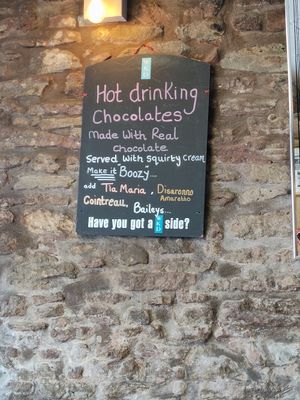 WKD
Hot drinking
Chocolates
Made With Real
chocolate
Served With squirty cream
Make it Boozy...
add Tia Maria, Disaronno
Amaretto
Cointreau, Baileys...
Have you got a WKD side?